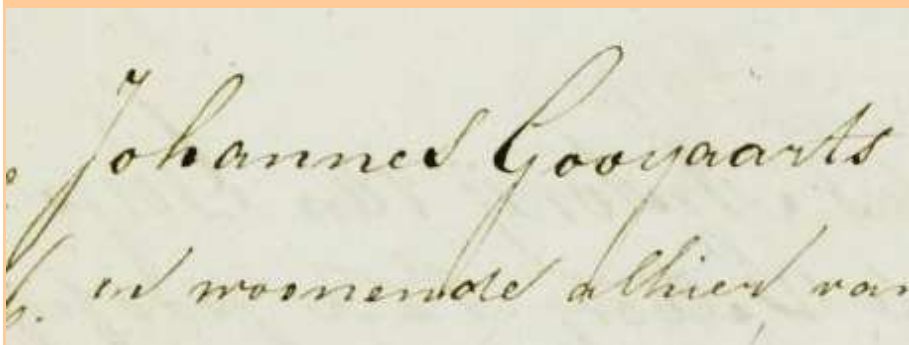 Johannes Gooyaarts
en woonende alhier van